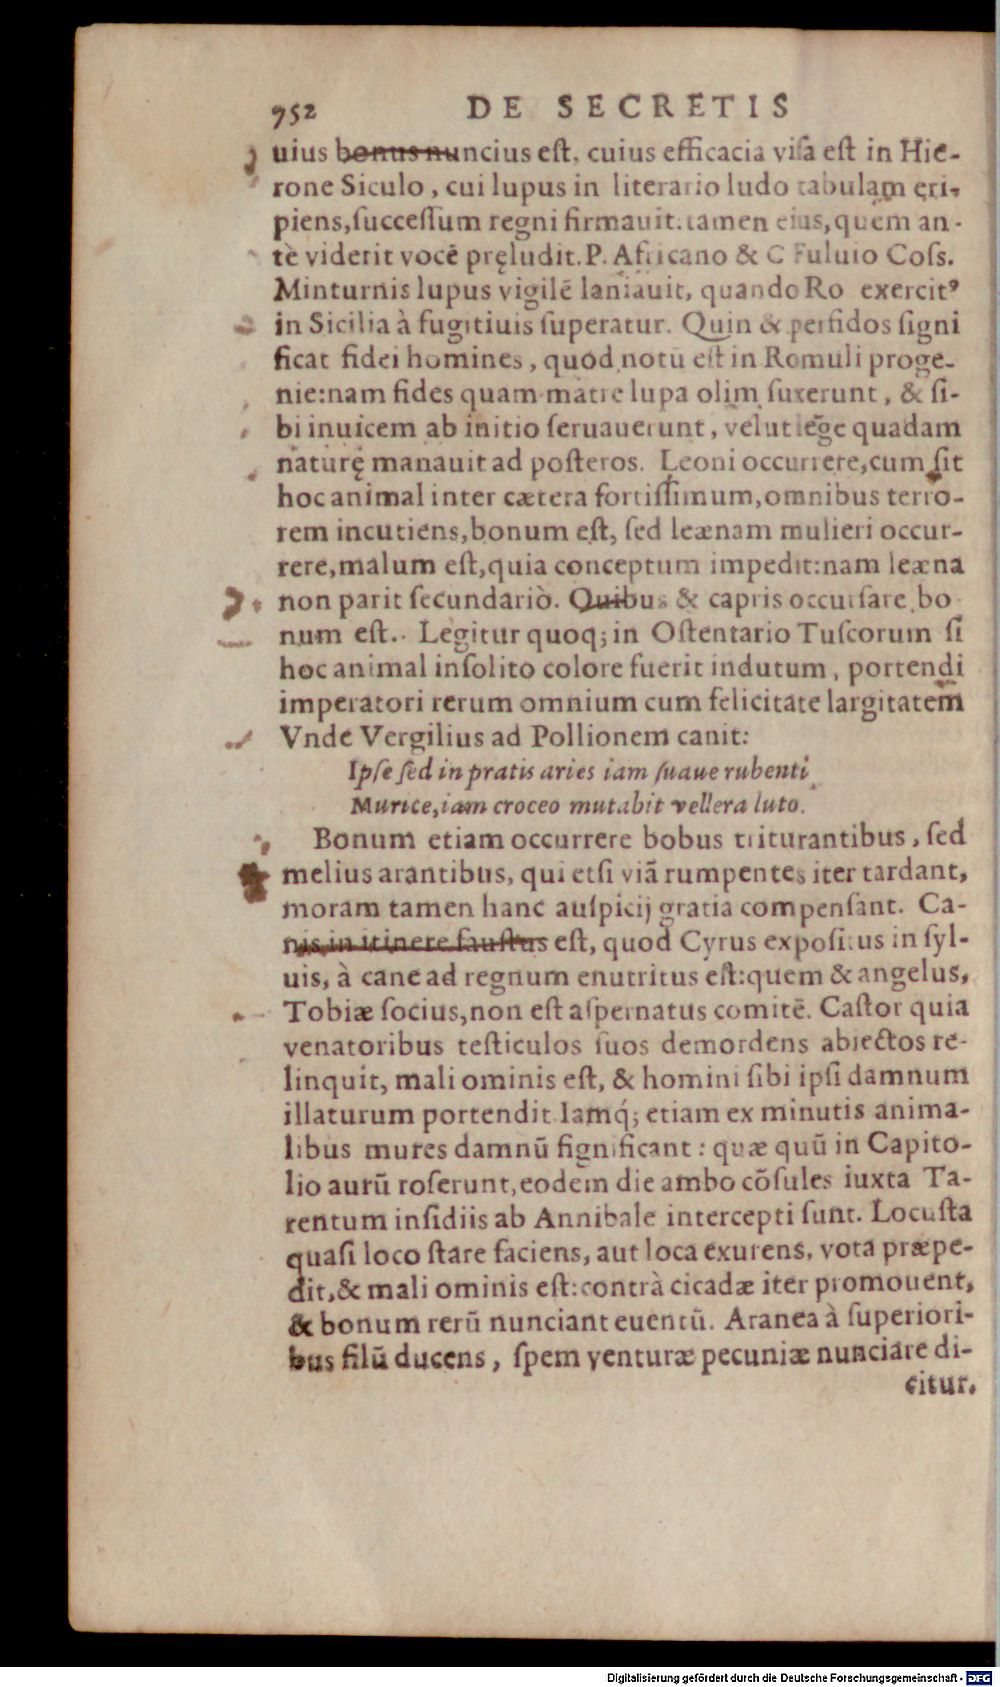 952 DE SECRETIS
uius bonus nuncius eſt, cuius efficacia viſa eſt in Hie-
rone Siculo, cui lupus in literario ludo tabulam eri-
piens, ſucceſſum regni firmauit. tamen eius, quem an-
tè viderit vocē pręludit. P. Africano & C Fuluio Coſs.
Minturnis lupus vigilē laniauit, quando Ro exercitꝰ
in Sicilia à fugitiuis ſuperatur. Quin & perfidos ſigni
ficat fidei homines, quod notū eſt in Romuli proge-
nie: nam fides quam matre lupa olim ſuxerunt, & ſi-
bi inuicem ab initio ſeruauerunt, velut lege quadam
naturę manauit ad poſteros. Leoni occurrere, cum ſit
hoc animal inter cætera fortiſſimum, omnibus terro-
rem incutiens, bonum eſt, ſed leænam mulieri occur-
rere, malum eſt, quia conceptum impedit: nam leæna
non parit ſecundariò. Quibus & capris occurſare bo
num eſt. Legitur quoq; in Oſtentario Tuſcorum ſi
hoc animal inſolito colore fuerit indutum, portendi
imperatori rerum omnium cum felicitate largitatem
Vnde Vergilius ad Pollionem canit:
Ipſe ſed in pratis aries iam ſuaue rubenti
Murice, iam croceo mutabit vellera luto.
Bonum etiam occurrere bobus triturantibus, ſed
melius arantibus, qui etſi viā rumpentes iter tardant,
moram tamen hanc auſpicij gratia compenſant. Ca-
nis in itinere fauſtus eſt, quod Cyrus expoſitus in ſyl-
uis, à cane ad regnum enutritus eſt: quem & angelus,
Tobiæ ſocius, non eſt aſpernatus comitē. Caſtor quia
venatoribus teſticulos ſuos demordens abiectos re-
linquit, mali ominis eſt, & homini ſibi ipſi damnum
illaturum portendit. Iamq́; etiam ex minutis anima-
libus mures damnū ſignificant: quæ quū in Capito-
lio aurū roſerunt, eodem die ambo cōſules iuxta Ta-
rentum inſidiis ab Annibale intercepti ſunt. Locuſta
quaſi loco ſtare faciens, aut loca exurens, vota præpe-
dit, & mali ominis eſt: contrà cicadæ iter promouent,
& bonum rerū nunciant euentū. Aranea à ſuperiori-
bus filū ducens, ſpem venturæ pecuniæ nunciare di-
citur.
Digitalisierung gefördert durch die Deutsche Forschungsgemeinschaft - DFG